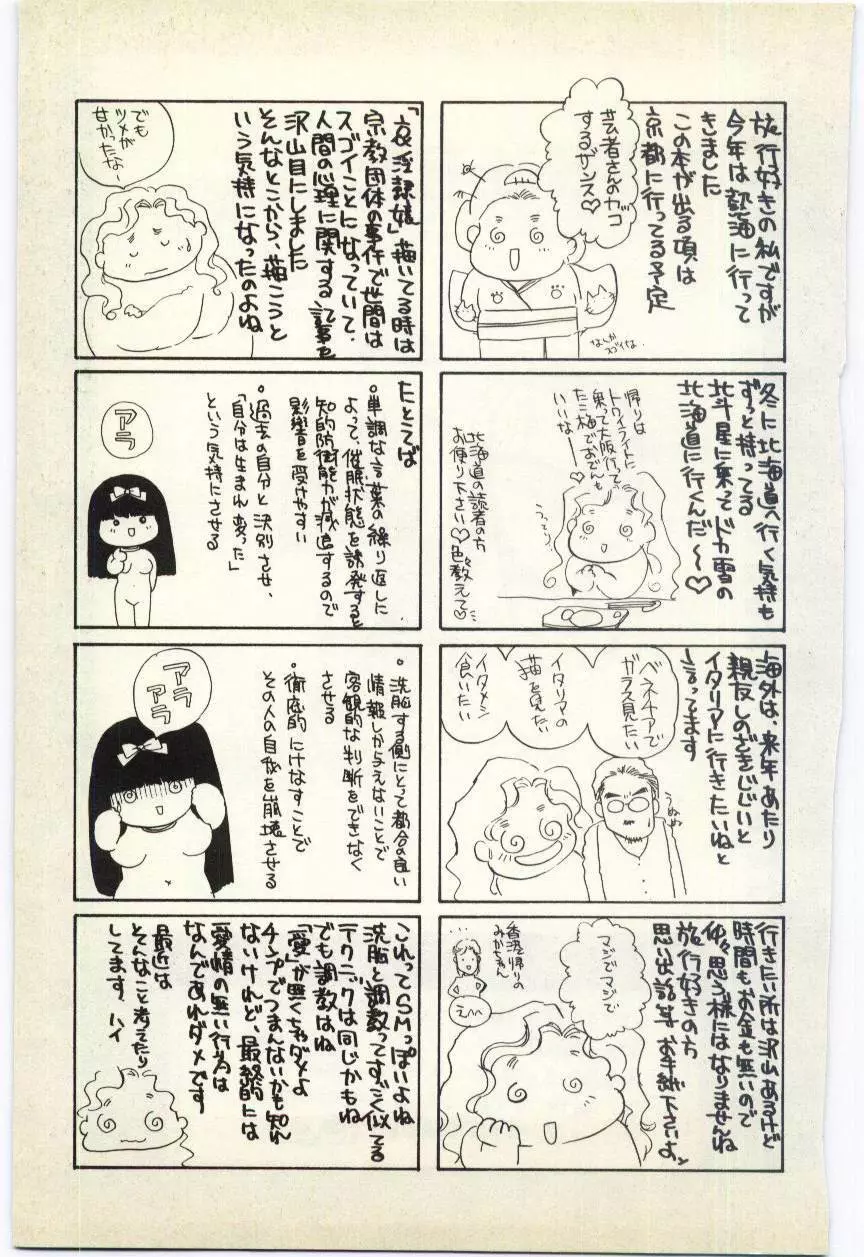 旅行好きの私ですが
今年は熱海に行って
きました
この本が出る頃は
京都に行ってる予定
芸者さんのカッコ
するザンス♡
なんか
スゴイな。
冬に北海道へ行く気持も
ずっと持ってる
北斗星に乗ってドカ雪の
北海道に行くんだ〜♡
帰りは
トワイライトに
乗って大阪行って
たこ梅でおでんも
いいなー♡
北海道の読者の方
お便り下さい♡色々教えて♡
海外は、来年あたり
親友しのざきじじいと
イタリアに行きたいねと
言ってます
ベネチアで
ガラス見たい
イタリアの
猫を見たい
イタメシ
食いたい
うむむ
行きたい所は沢山あるけど
時間もお金も無いので
仲々思う様にはなりませんね
旅行好きの方
思い出話等お手紙下さいよ。
マジでマジで
香港帰りの
みかちゃん
えへへ
「哀淫隷嬢」描いてる時は
宗教団体の事件で世間は
スゴイことになっていて、
人間の心理に関する記事を
沢山目にしました
そんなとこから、描こうと
いう気持になったのよね
でも
ツメが
甘かったな〜
たとえば
•単調な言葉の繰り返しに
よって、催眠状態を誘発すると
知的防衛能力が減退するので
影響を受けやすい
•過去の自分と決別させ、
「自分は生まれ変った」
という気持にさせる
アラ
•洗脳する側にとって都合の良い
情報しか与えないことで
客観的な判断をできなく
させる
•徹底的にけなすことで
その人の自我を崩壊させる
アラ
アラ
これってSMっぽいよね
洗脳と調教ってすごく似てる
テクニックは同じかもね
でも調教はね
「愛」が無くちゃダメよ
チンプでつまんないかも知れ
ないけれど、最終的には
愛情の無い行為は
なんであれダメです
最近は
そんなこと考えたり
してます、ハイ